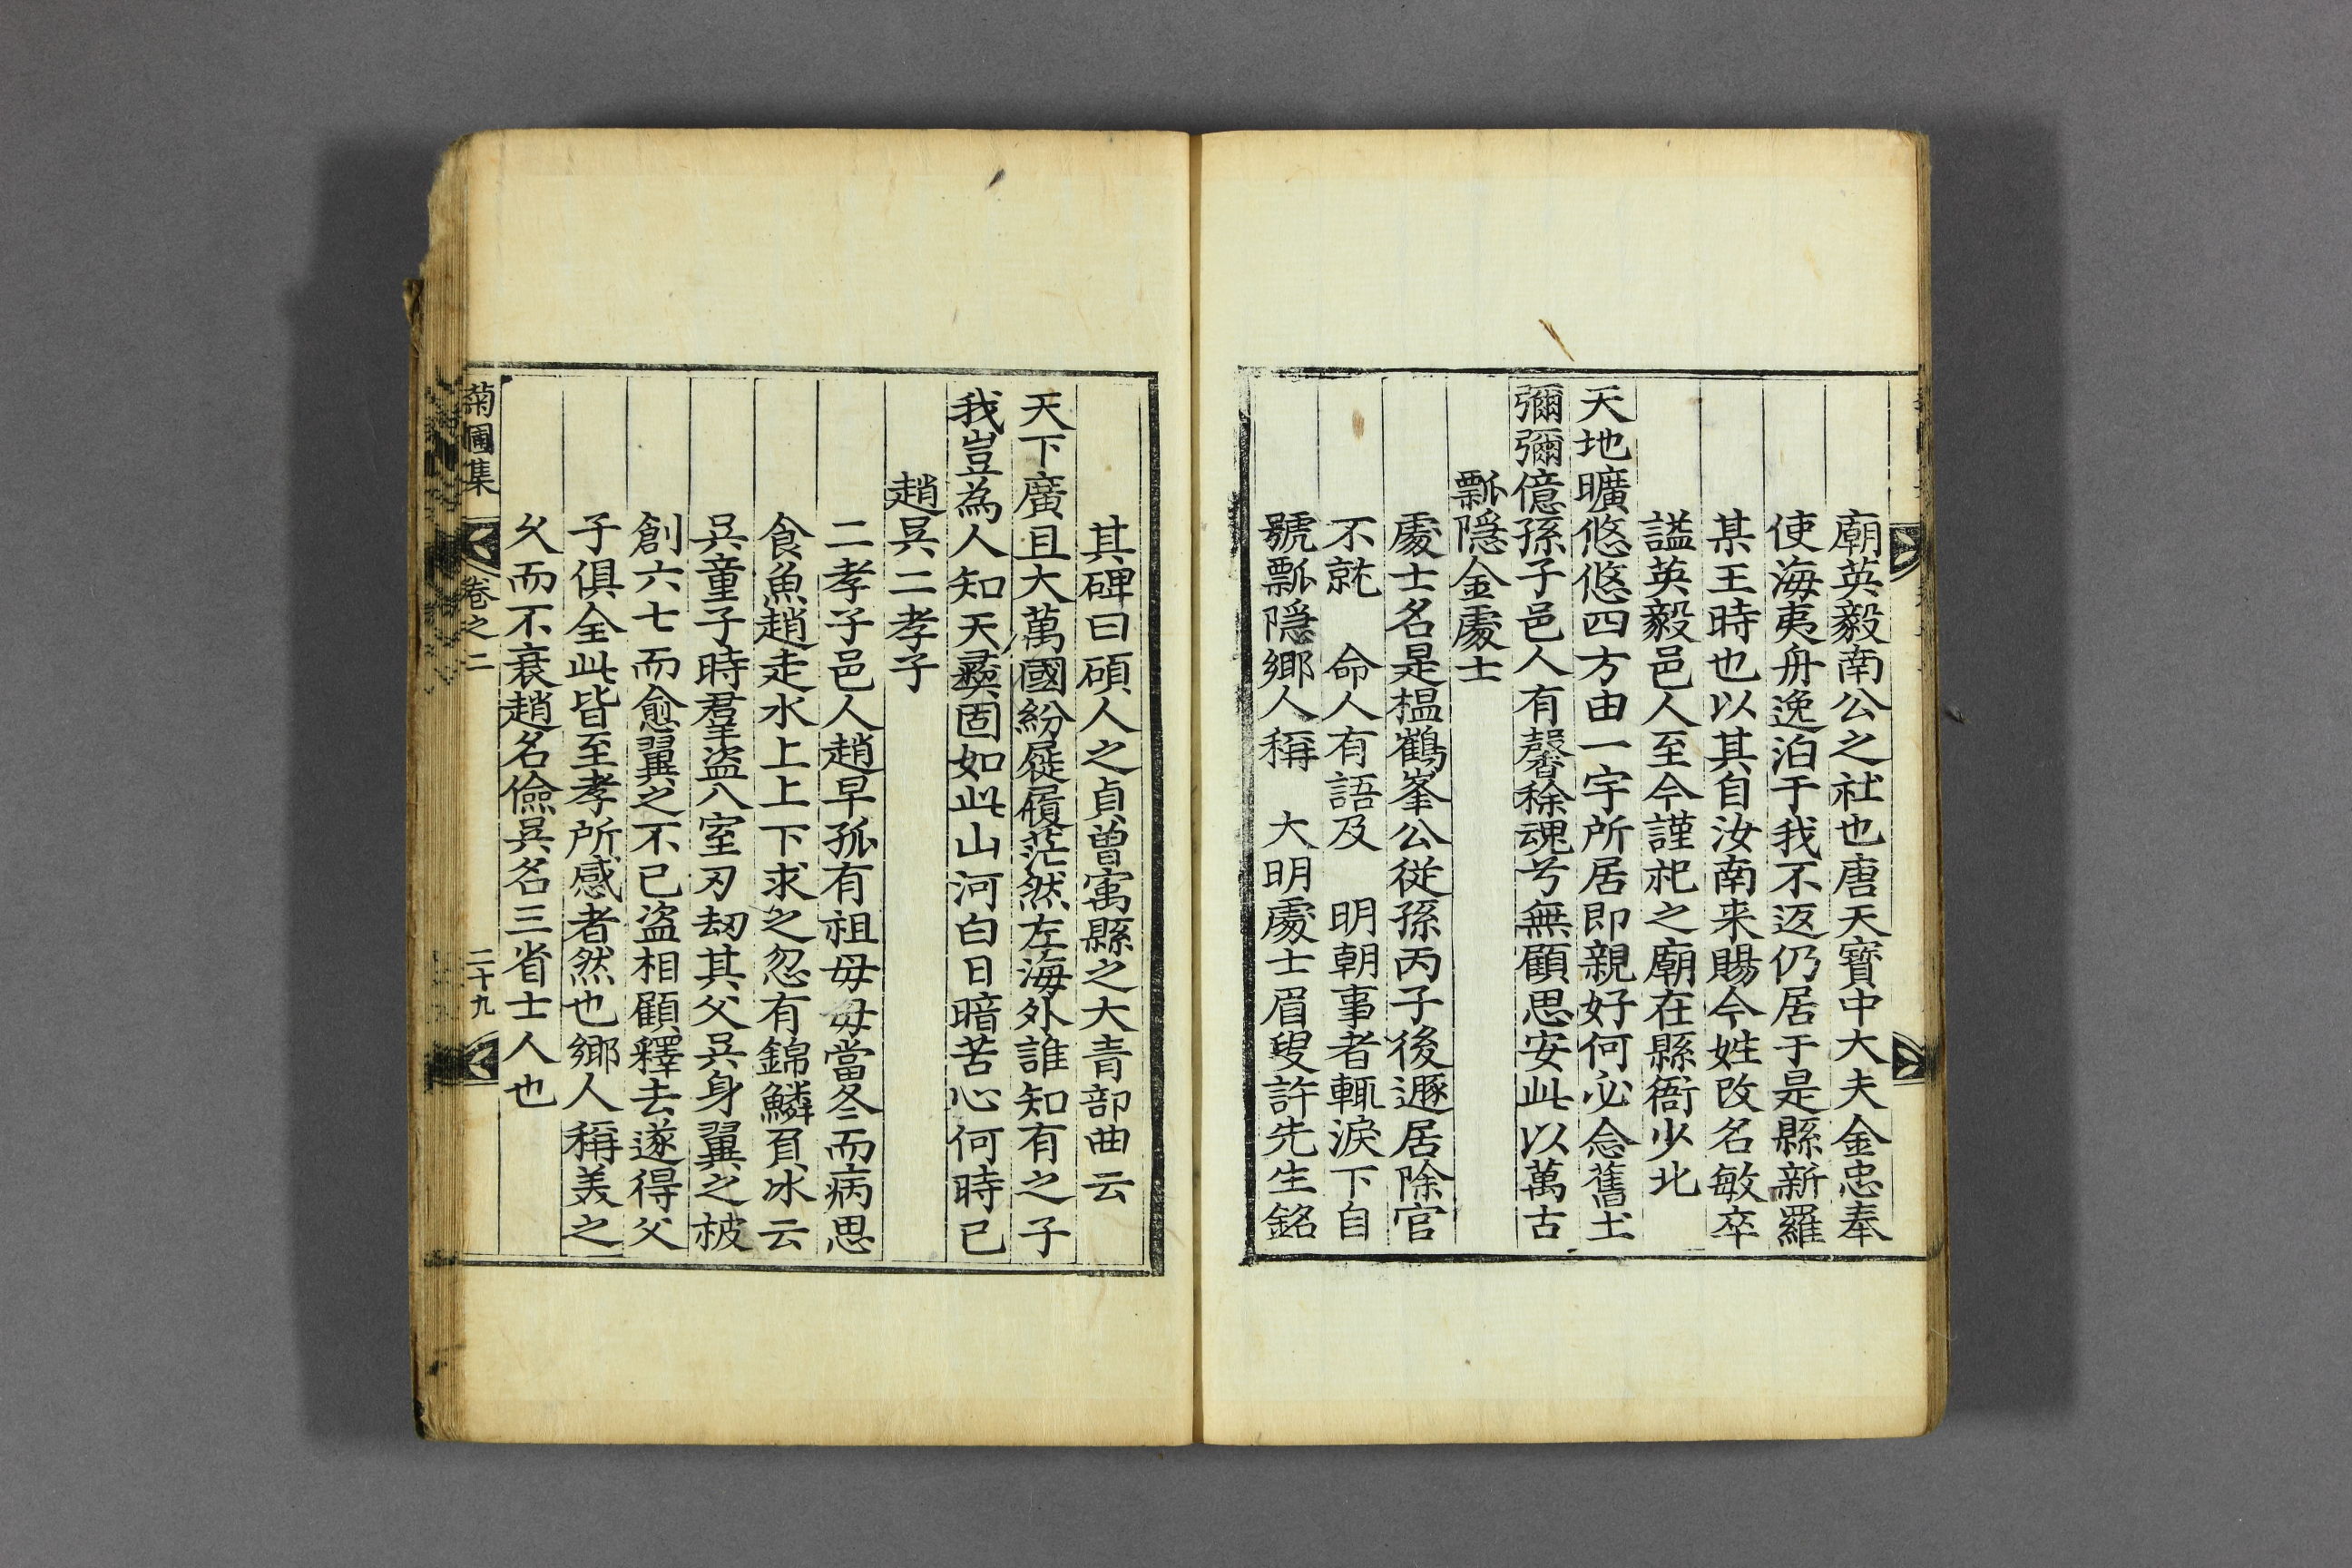 廟英毅南公之社也唐天寶中大夫金忠奉
使海夷舟逸泊于我不返仍居于是縣新羅
某王時也以其自汝南来賜今姓改名敏卒
謚英毅邑人至今謹祀之廟在縣衙少北
天地曠悠悠四方由一宇所居即親好何必念舊土
彌彌億孫子邑人有馨稌魂兮無顧思安此以萬古
瓢隠金處士
處士名是榅鶴峯公從孫丙子後遯居除官
不就　命人有語及　明朝事者輒淚下自
號瓢隠鄉人稱　大明處士眉叟許先生銘
其碑曰碩人之貞曽寓縣之大青部曲云
天下廣且大萬國紛屣履茫然左海外誰知有之子
我豈為人知天彜固如此山河白日暗苦心何時已
趙吳二孝子
二孝子邑人趙早孤有祖母母當冬而病思
食魚趙走水上上下求之忽有錦鱗負冰云
吳童子時羣盗入室刃刧其父吳身翼之被
創六七而愈翼之不已盗相顧釋去遂得父
子俱全此皆至孝所感者然也鄉人稱美之
乆而不衰趙名儉吳名三省士人也
菊圃集　卷之二　二十九